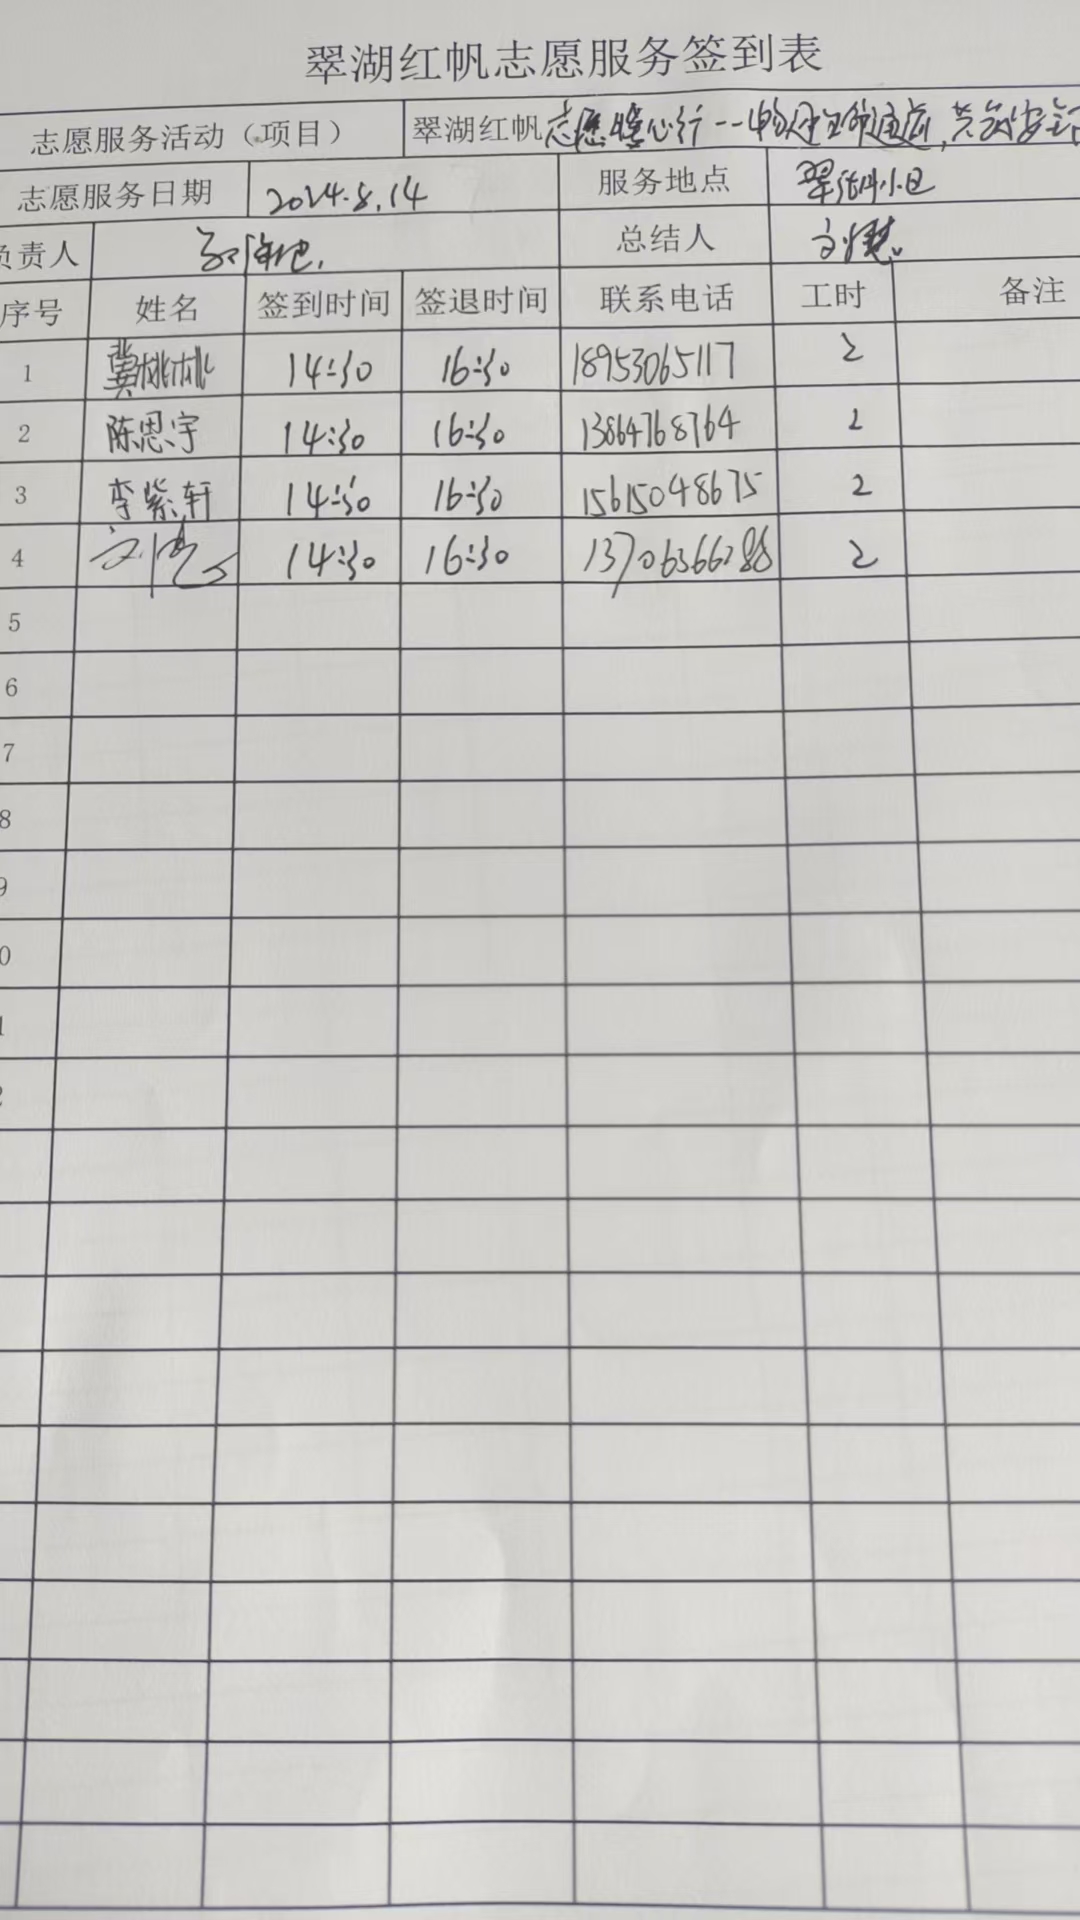 翠湖红帆志愿服务签到表
志愿服务活动（项目） 翠湖红帆志愿暖心行--畅通生命通道，共筑安全
志愿服务日期 2024.8.14 服务地点 翠湖小区
负责人 总结人
序号 姓名 签到时间 签退时间 联系电话 工时 备注
1 冀桃桃 14:30 16:30 18953065117 2
2 陈思宇 14:30 16:30 13864768764 2
3 李紫轩 14:30 16:30 15615048675 2
4 14:30 16:30 13706366288 2
5
6
7
8
9
0
1
2